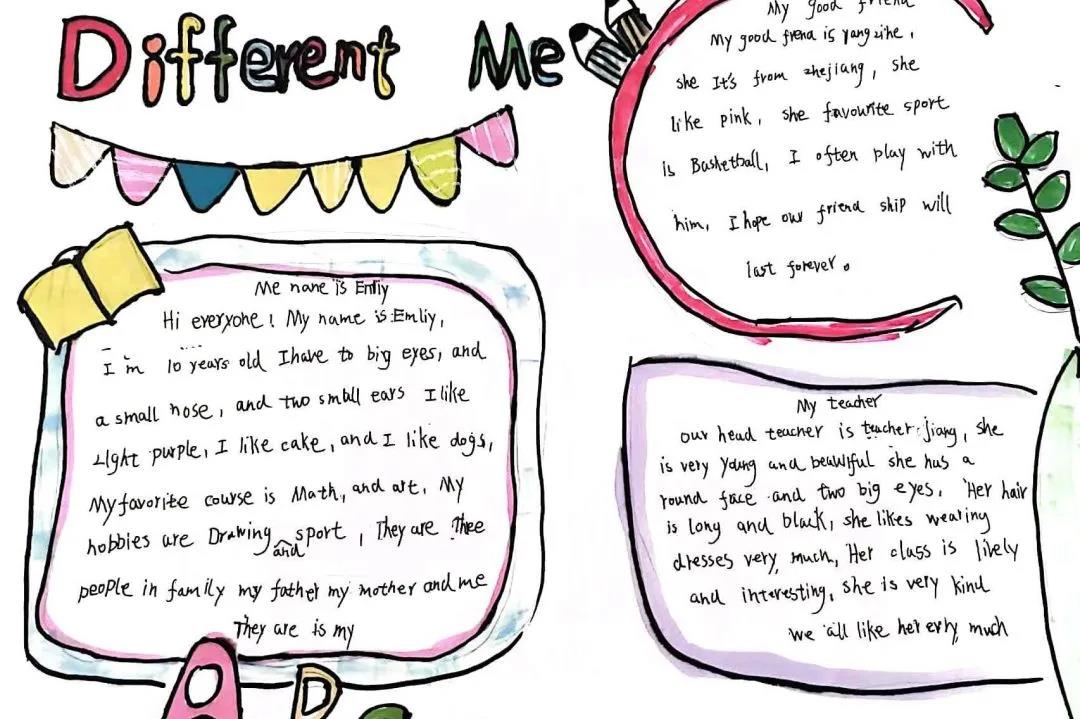 Different Me
Me name is Emliy
Hi everyone! My name is Emliy,
I'm 10 years old I have to big eyes, and
a small nose, and two small ears I like
Light purple, I like cake, and I like dogs,
My favorite course is Math, and art, My
hobbies are Drawing and sport, They are Thee
people in family my father my mother and me
They are is my
My good friend
My good frend is yangzihe,
she It's from zhejiang, she
like pink, she favourite sport
is Basketball, I often play with
him, I hope our friend ship will
last forever。
My teacher
our head teacher is teacher jiang, she
is very young and beautiful she has a
round face and two big eyes. Her hair
is long and black, she likes wearing
dresses very much, Her class is lively
and interesting, she is very kind
we all like her erly much